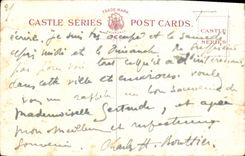 TRADE MARK
CASTLE SERIES POST CARDS.
CASTLE
SERIES
écrire. Je suis très occupé et le samedi
après midi et le Dimanche
pas pour voir tout ce qu'il y a d'intéressant
dans cette ville et environs. Voulez
vous me rappeler au bon souvenir de
Mademoiselle Gertrude, et ayez
mon meilleur et respectueux
Souvenir. Charles H.